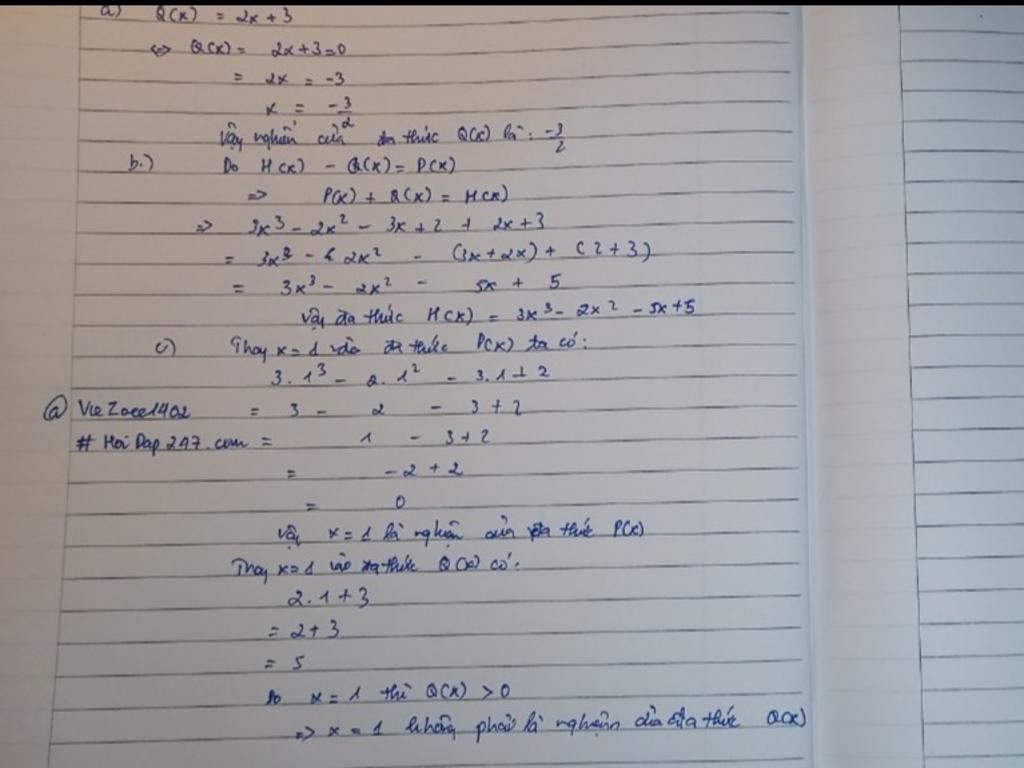 a) Q(x) = 2x + 3
<=> Q(x) = 2x + 3 = 0
= 2x = -3
x = -3/2
Vậy nghiệm của đa thức Q(x) là : -3/2
b.) Do H(x) - Q(x) = P(x)
=> P(x) + Q(x) = H(x)
=> 3x³ - 2x² - 3x + 2 + 2x + 3
= 3x³ - 2x² - (3x + 2x) + (2 + 3)
= 3x³ - 2x² - 5x + 5
Vậy đa thức H(x) = 3x³ - 2x² - 5x + 5
c) Thay x = 1 vào đa thức P(x) ta có :
3.1³ - 2.1² - 3.1 + 2
@ VieZace1402 = 3 - 2 - 3 + 2
# HoiDap247.com = 1 - 3 + 2
= -2 + 2
= 0
Vậy x = 1 là nghiệm của đa thức P(x)
Thay x = 1 vào đa thức Q(x) có :
2.1 + 3
= 2 + 3
= 5
Do x = 1 thì Q(x) > 0
=> x = 1 không phải là nghiệm của đa thức Q(x)